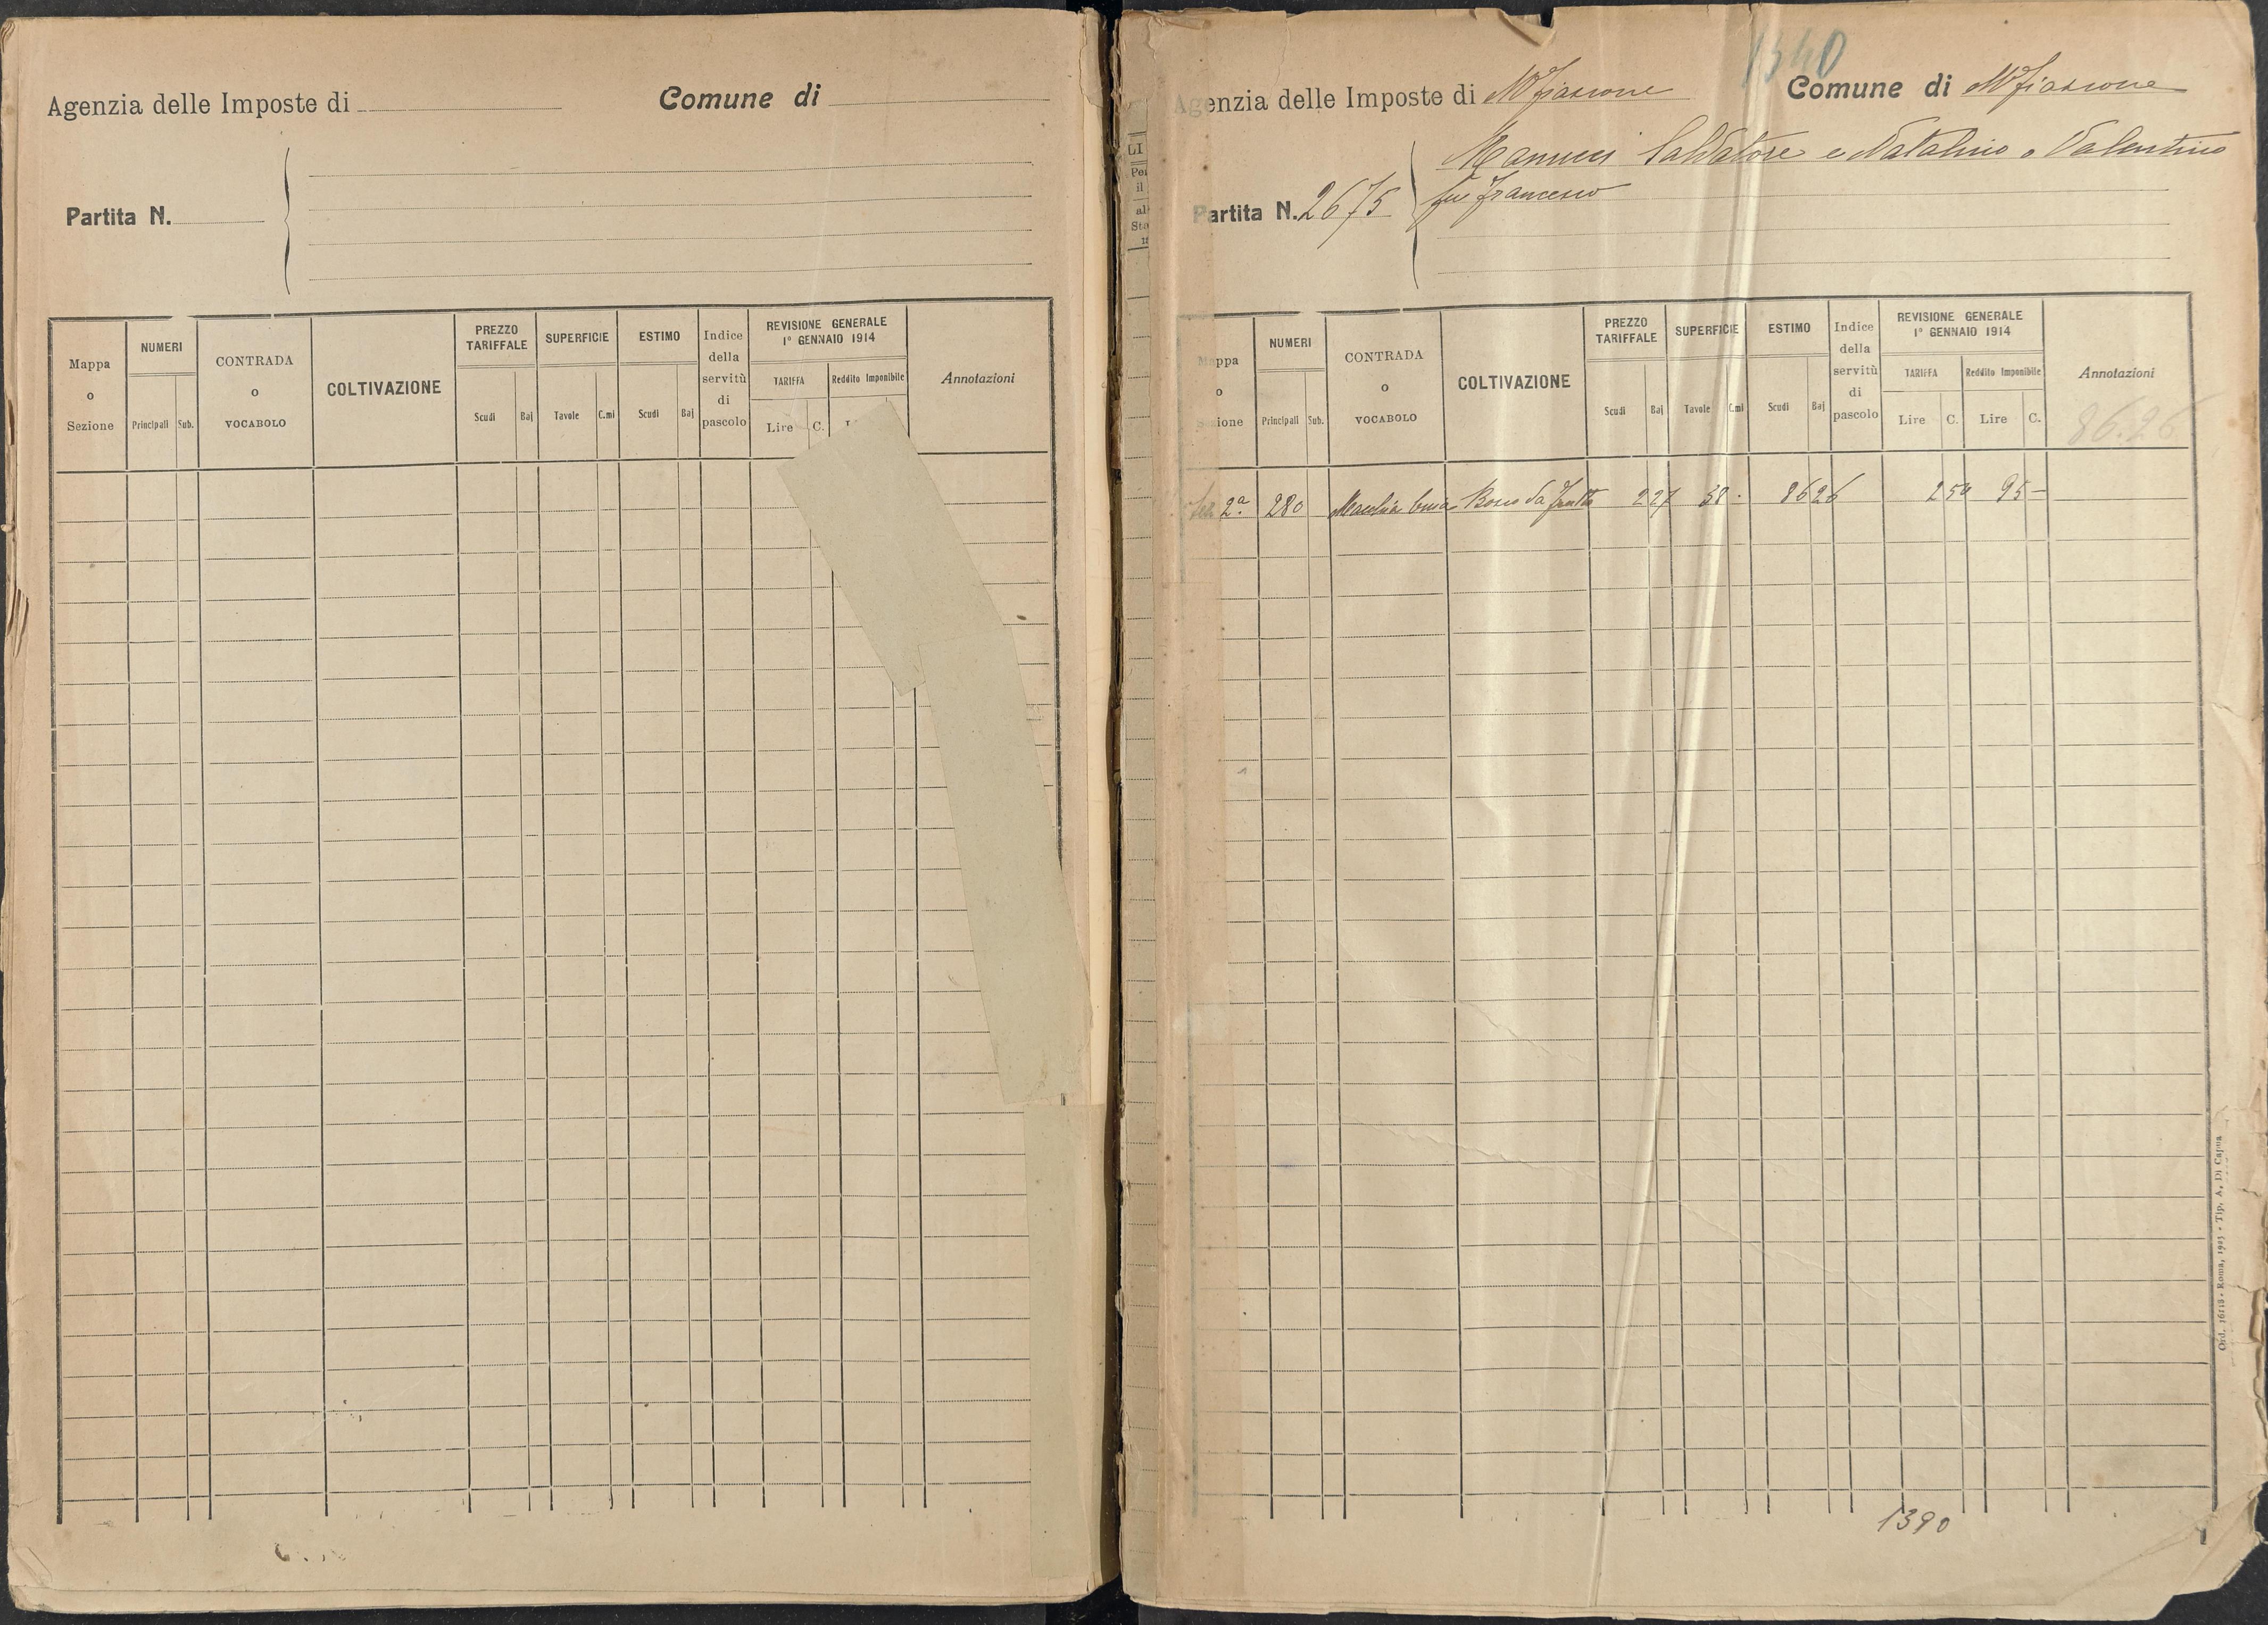 Agenzia delle Imposte di
Comune di
Partita N.
Mappa o Sezione
NUMERI
Principali Sub.
CONTRADA o VOCABOLO
COLTIVAZIONE
PREZZO TARIFFALE
Scudi Baj
SUPERFICIE
Tavole C.mi
ESTIMO
Scudi Baj
Indice della servitù di pascolo
REVISIONE GENERALE
1° GENNAIO 1914
TARIFFA Reddito Imponibile
Lire C.
Annotazioni
1340
enzia delle Imposte di Mfiascone
Comune di Mfiascone
Manucci Salvatore e Natalino e Valentino
fu Francesco
Partita N. 2675
ppa o ione
NUMERI
Principali Sub.
CONTRADA o VOCABOLO
COLTIVAZIONE
PREZZO TARIFFALE
Scudi Baj
SUPERFICIE
Tavole C.mi
ESTIMO
Scudi Baj
Indice della servitù di pascolo
REVISIONE GENERALE
1° GENNAIO 1914
TARIFFA Reddito Imponibile
Lire C. Lire C.
Annotazioni
86.26
2ª 280 Bosco da frutto 227 38 - 8626 250 95 -
Ord. 16118 - Roma, 1925 - Tip. A. Di Capua
1390